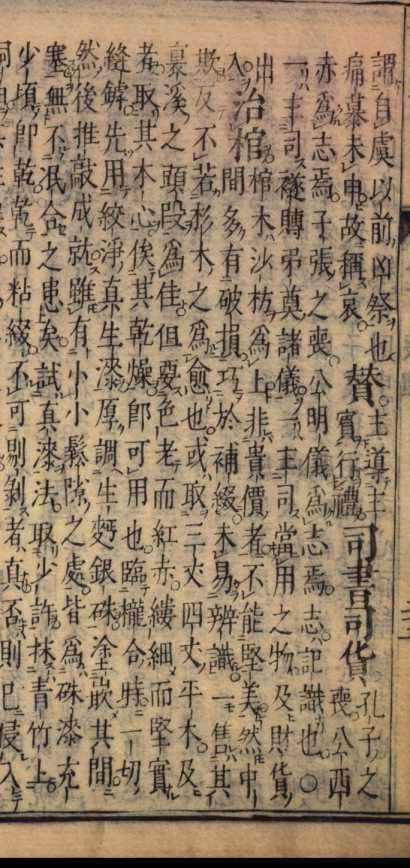 謂自虞以前凶祭也 贊 主 導主 賓行禮 司書司貨 孔子之喪公西
赤爲志焉子張之喪公明儀爲志焉志記識也○
痛慕未申故稱哀
一主司襚賻弔奠諸儀一主司當用之物及財貨
出入 治棺 棺木沙枋爲上非貴價者不能堅美然中
間多有破損巧於補綴未易辨識一售其
欺反不若杉木之爲愈也或取三丈四丈平木及
裏溪之頭段爲佳但要色老而紅赤縷細而堅實
者取其木心俟其乾燥卽可用也臨櫳合時一切
縫罅先用絞淨真生漆厚調生麪銀硃塗嵌其間
然後推敲成就雖有小小鬆隙之處皆爲硃漆充
塞無不泯合之患矣試真漆法取少許抹青竹上
少頃卽乾 而粘綴不可剔剝者真否則已侵入